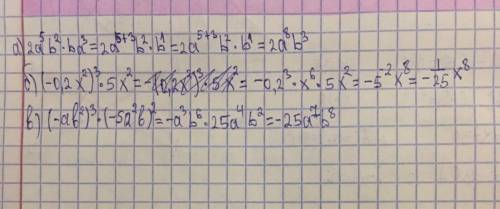 а) 2a⁵b²·ba³=2a⁵⁺³b²·b¹=2a⁵⁺³b²·b¹=2a⁸b³
б) (-0,2x²)³·5x²=-(0,2x²)³·5x²=-0,2³·x⁶·5x²=-5⁻²x⁸=-1/25x⁸
в) (-ab²)³·(-5a²b)²=-a³b⁶·25a⁴b²=-25a⁷b⁸